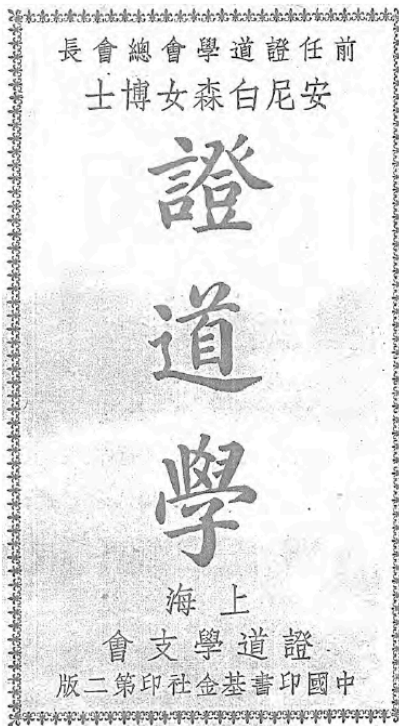 前任證道學會總會長
安尼白森女博士
證道學
上海
證道學支會
中國印書基金社印第二版